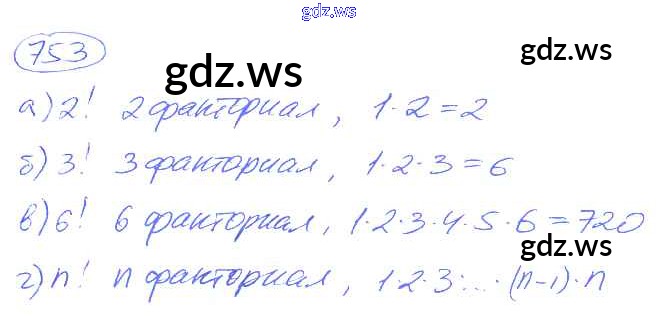 gdz.ws
753
gdz.ws
gdz.ws
а) 2! 2 факториал, 1·2=2
б) 3! 3 факториал, 1·2·3=6
в) 6! 6 факториал, 1·2·3·4·5·6=720
gdz.ws
г) n! n факториал, 1·2·3·...·(n-1)·n